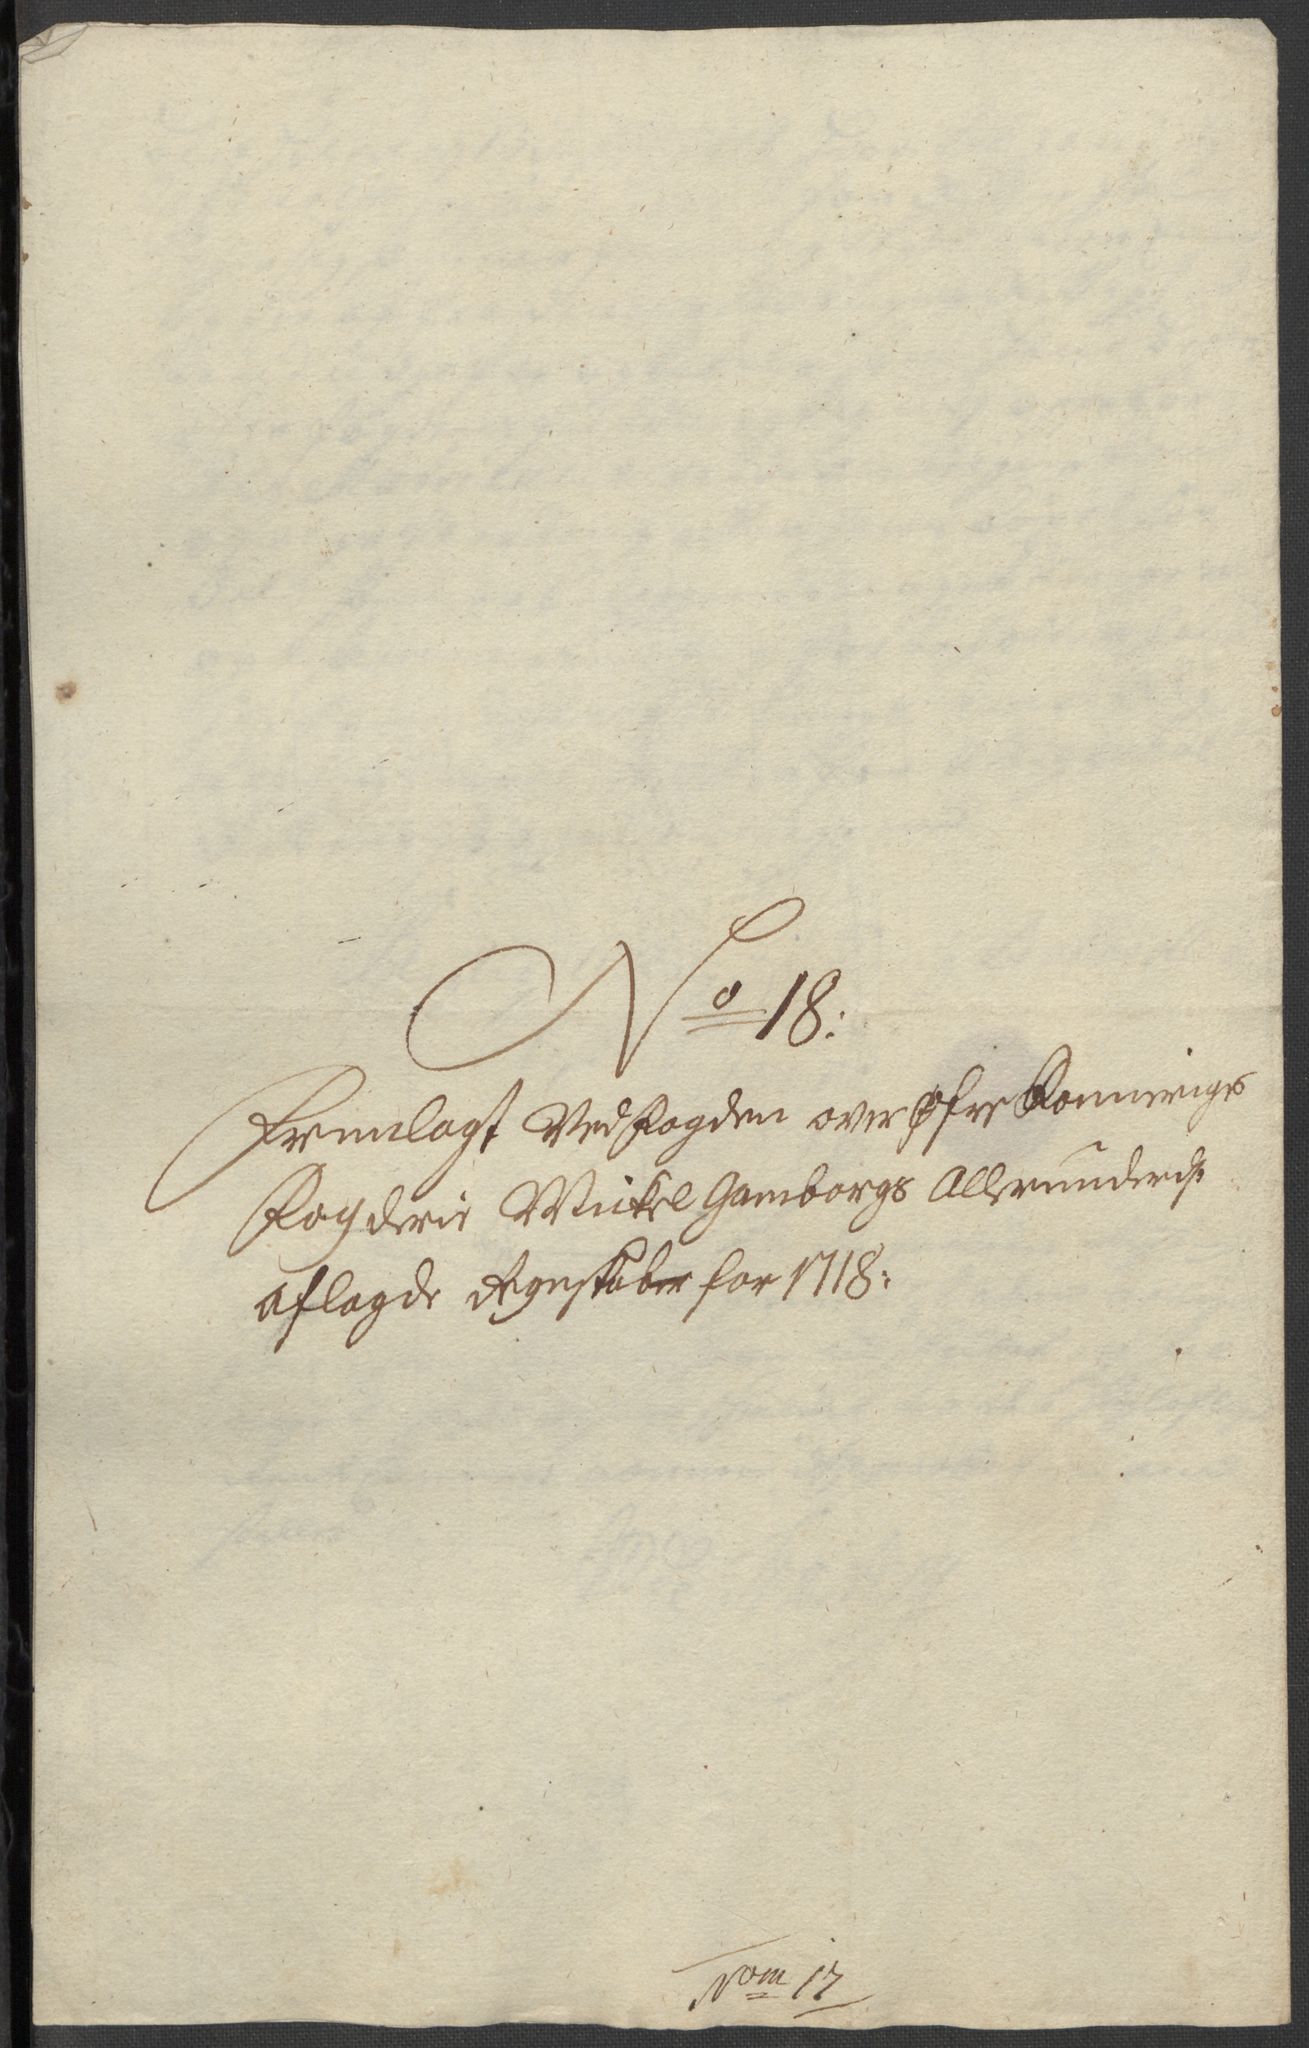 No 18:
Fremlagt Ved Fogden over Øfre Romerigs
Fogderie Mickel Gamborgs Allerunderd:st
aflagde Regnskaber for 1718:
Nom 17